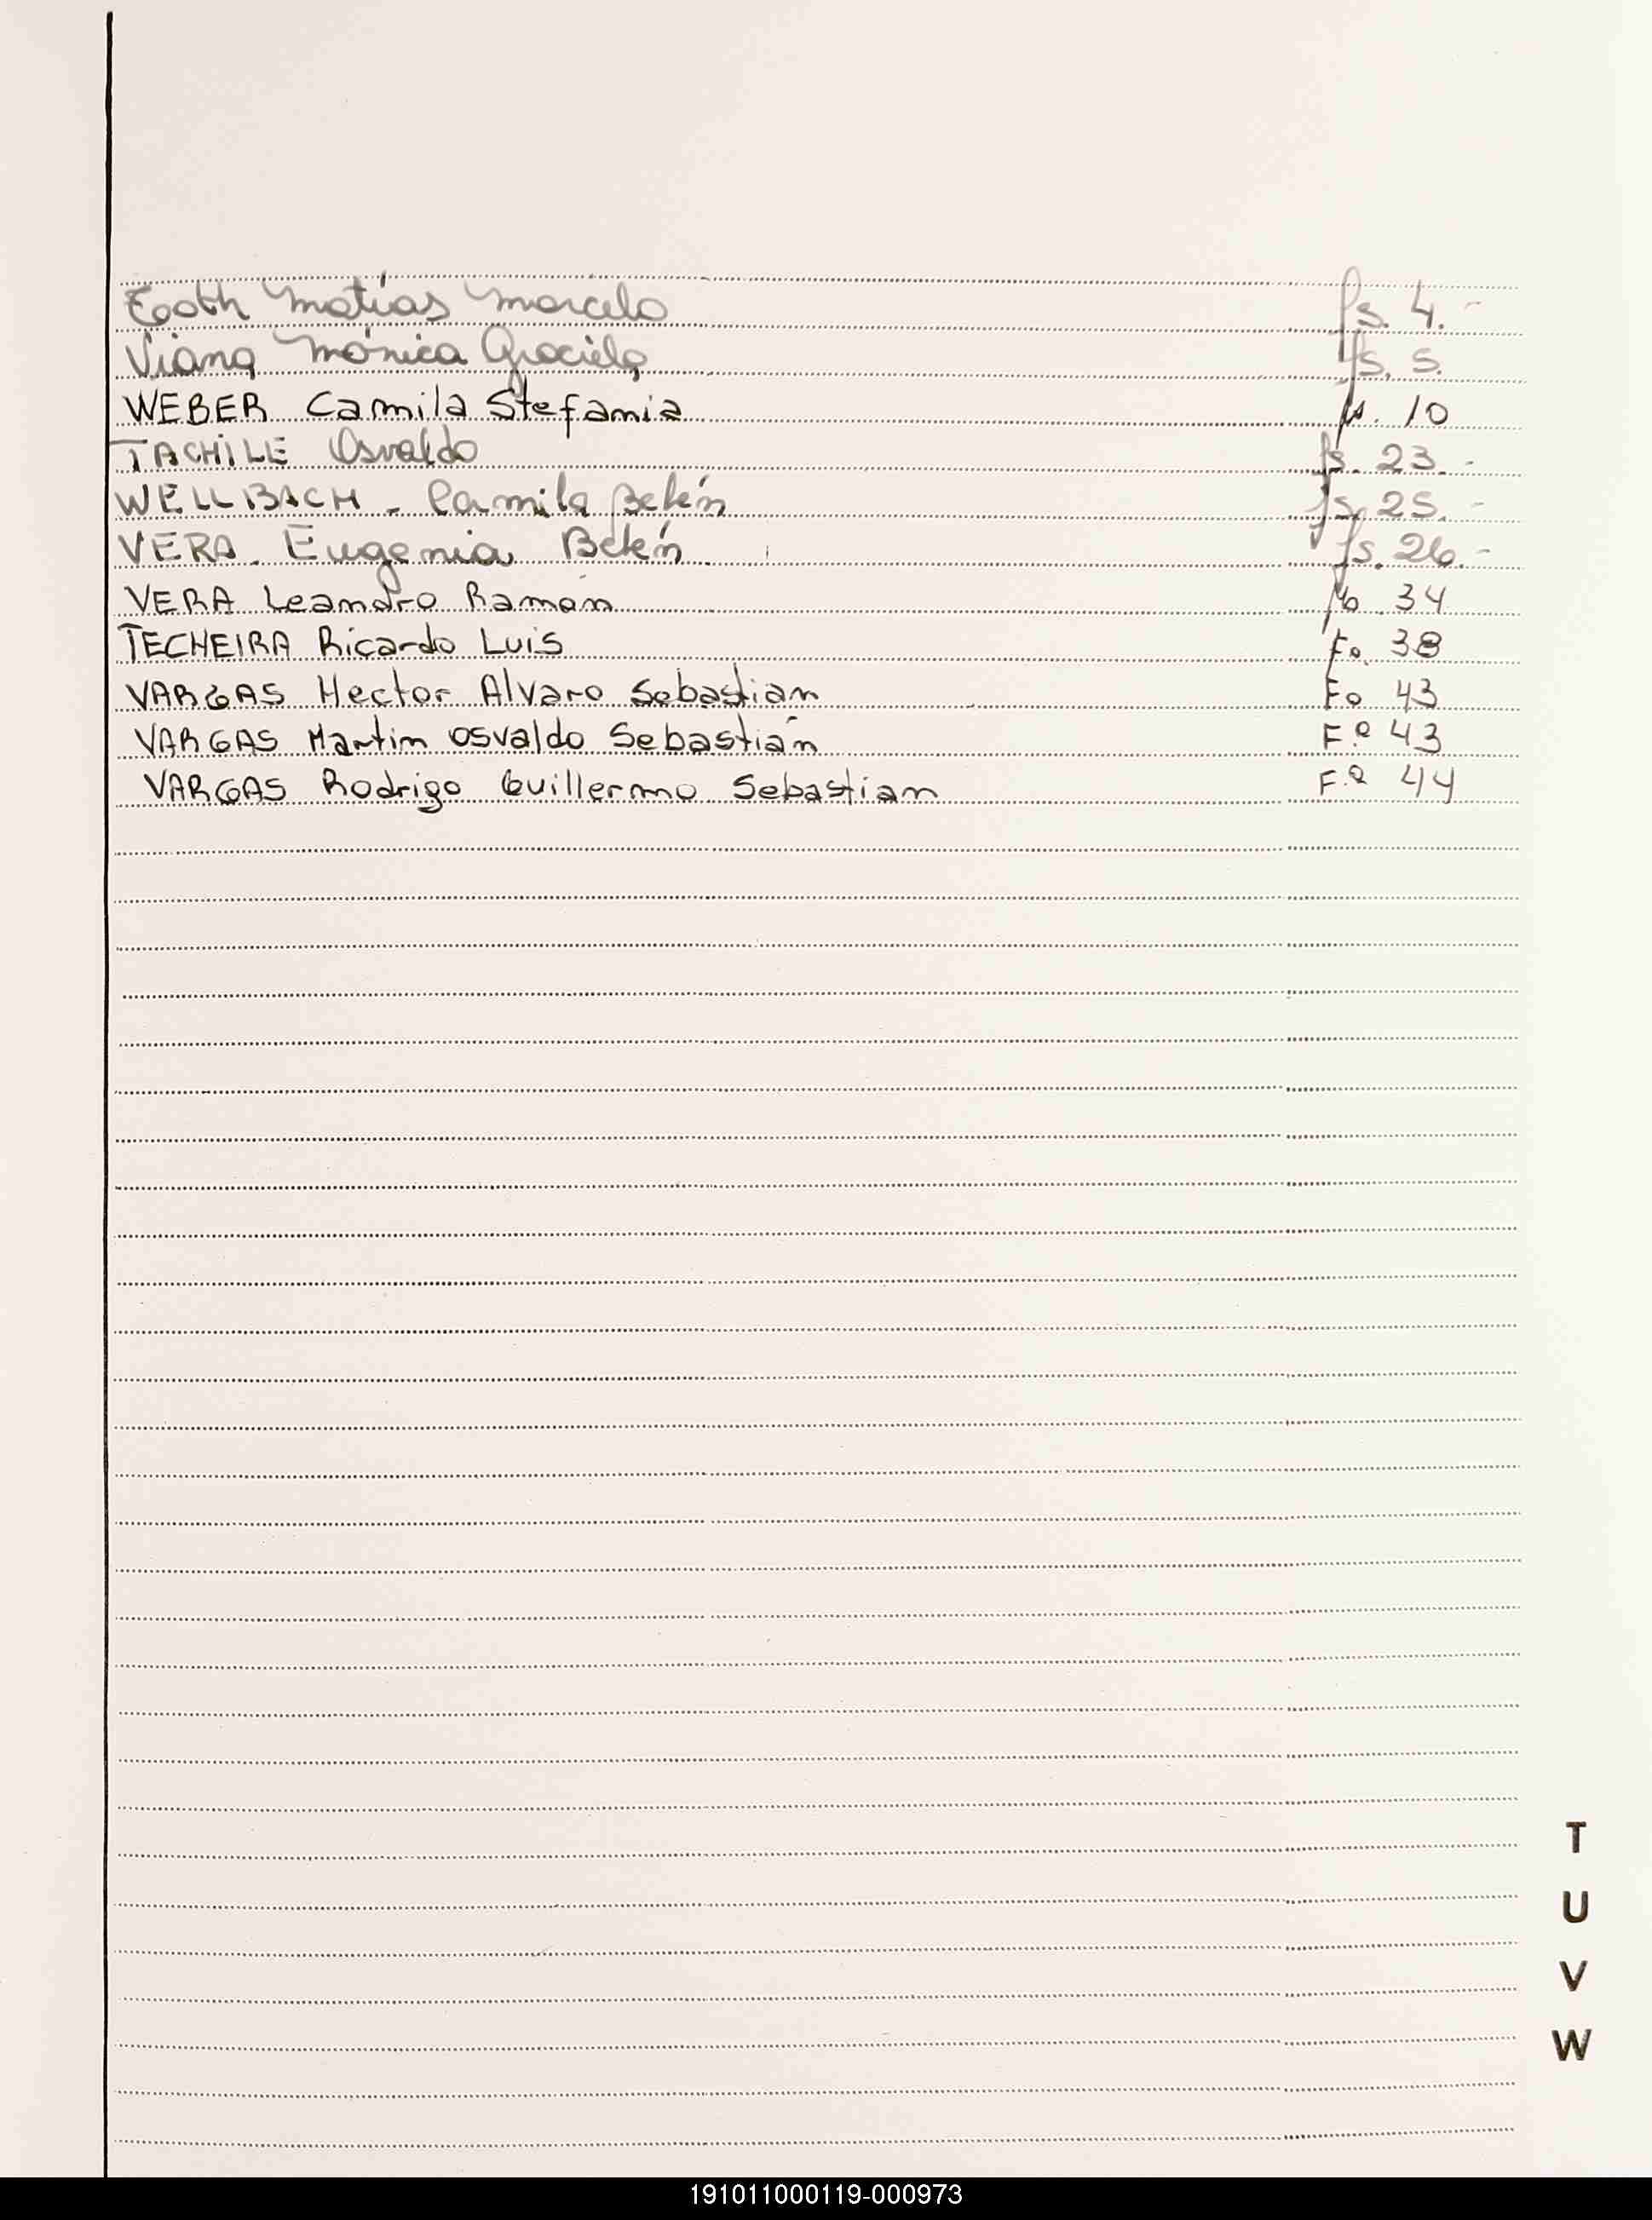 Tooth Matías Marcelo fs. 4.-
Viana Mónica Graciela fs. 5.
WEBER Camila Stefania fs. 10
TACHILE Osvaldo fs. 23.-
WELLBACH - Camila Belén fs. 25.-
VERA. Eugenia Belén fs. 26.-
VERA Leandro Ramón Fo. 34
TECHEIRA Ricardo Luis Fo. 38
VARGAS Hector Alvaro Sebastian Fo 43
VARGAS Martin Osvaldo Sebastián F.º 43
VARGAS Rodrigo Guillermo Sebastian F.º 44
T
U
V
W
191011000119-000973